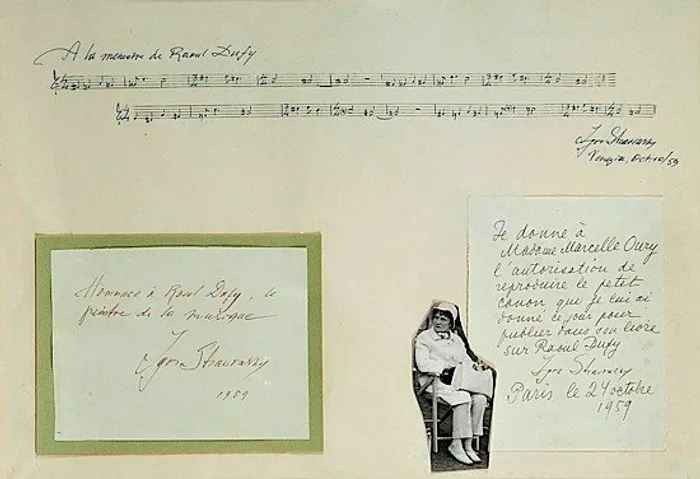 A la memoire de Raoul Dufy
Igor Stravinsky
Venezia, Oct 10/59
Hommage à Raoul Dufy, le
peintre de la musique
Igor Stravinsky
1959
Je donne à
Madame Marcelle Oury
l'autorisation de
reproduire le petit
canon que je lui ai
donné ce jour pour
publier dans son livre
sur Raoul Dufy
Igor Stravinsky
Paris le 24 octobre
1959